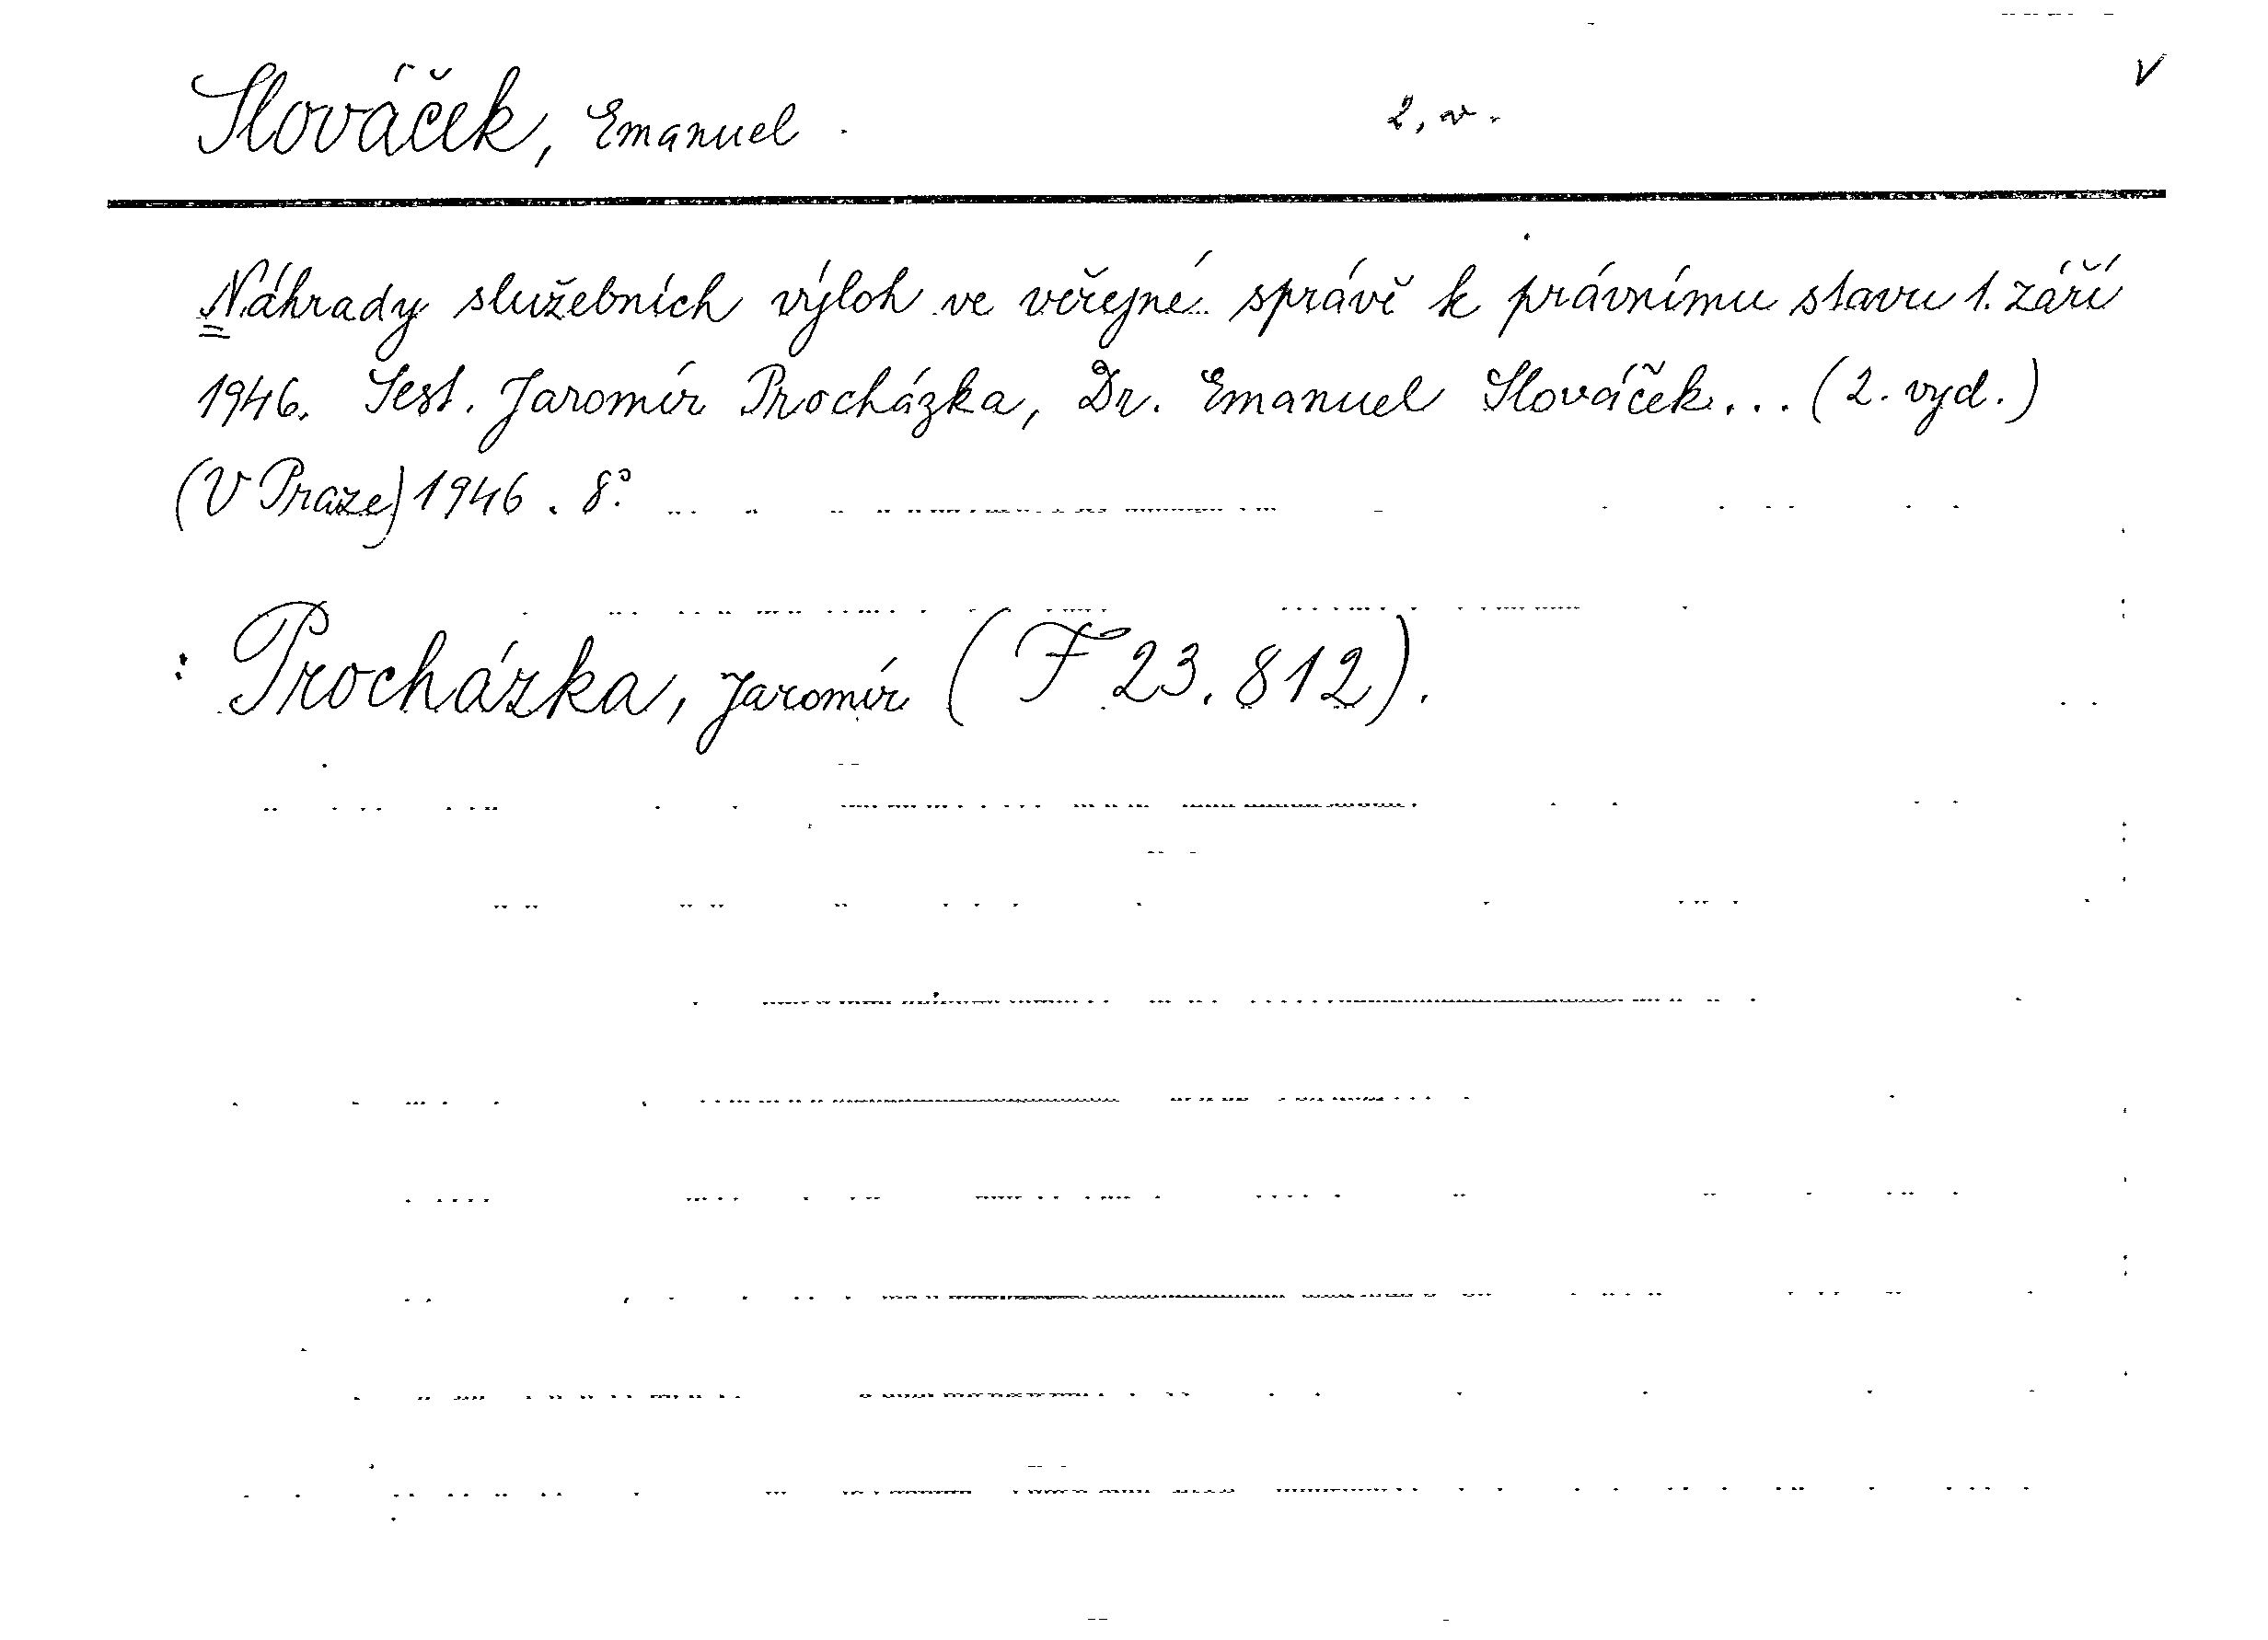 Slováček, Emanuel. 2, v. V
Náhrady služebních výloh ve veřejné správě k právnímu stavu 1. září
1946. Sest. Jaromír Procházka, Dr. Emanuel Slováček... (2. vyd.)
(V Praze) 1946. 8°.
: Procházka, Jaromír (F 23.812).